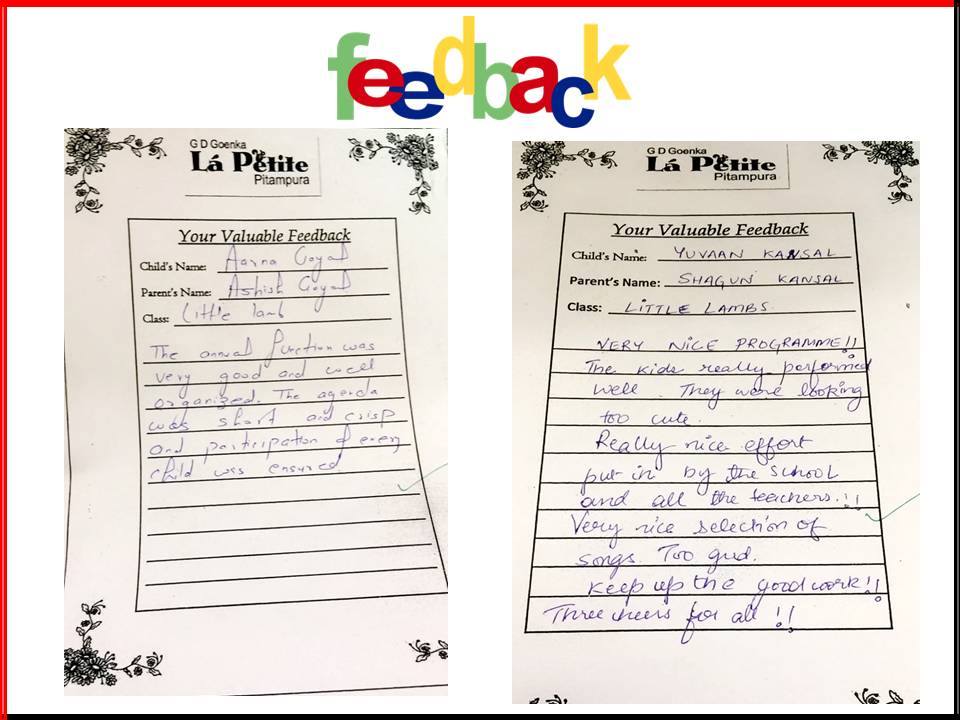 feedback
G D Goenka
Lá Petite
Pitampura
Your Valuable Feedback
Child's Name: Aarna Goyal
Parent's Name: Ashish Goyal
Class: Little lamb
The annual function was
very good and well
organized. The agenda
was short and crisp
and participation of every
child was ensured.
G D Goenka
Lá Petite
Pitampura
Your Valuable Feedback
Child's Name: YUVAAN KANSAL
Parent's Name: SHAGUN KANSAL
Class: LITTLE LAMBS.
VERY NICE PROGRAMME!!
The kids really performed
well. They were looking
too cute.
Really nice effort
put in by the school
and all the teachers.!!
Very nice selection of
songs. Too gud.
Keep up the good work!!
Three cheers for all!!